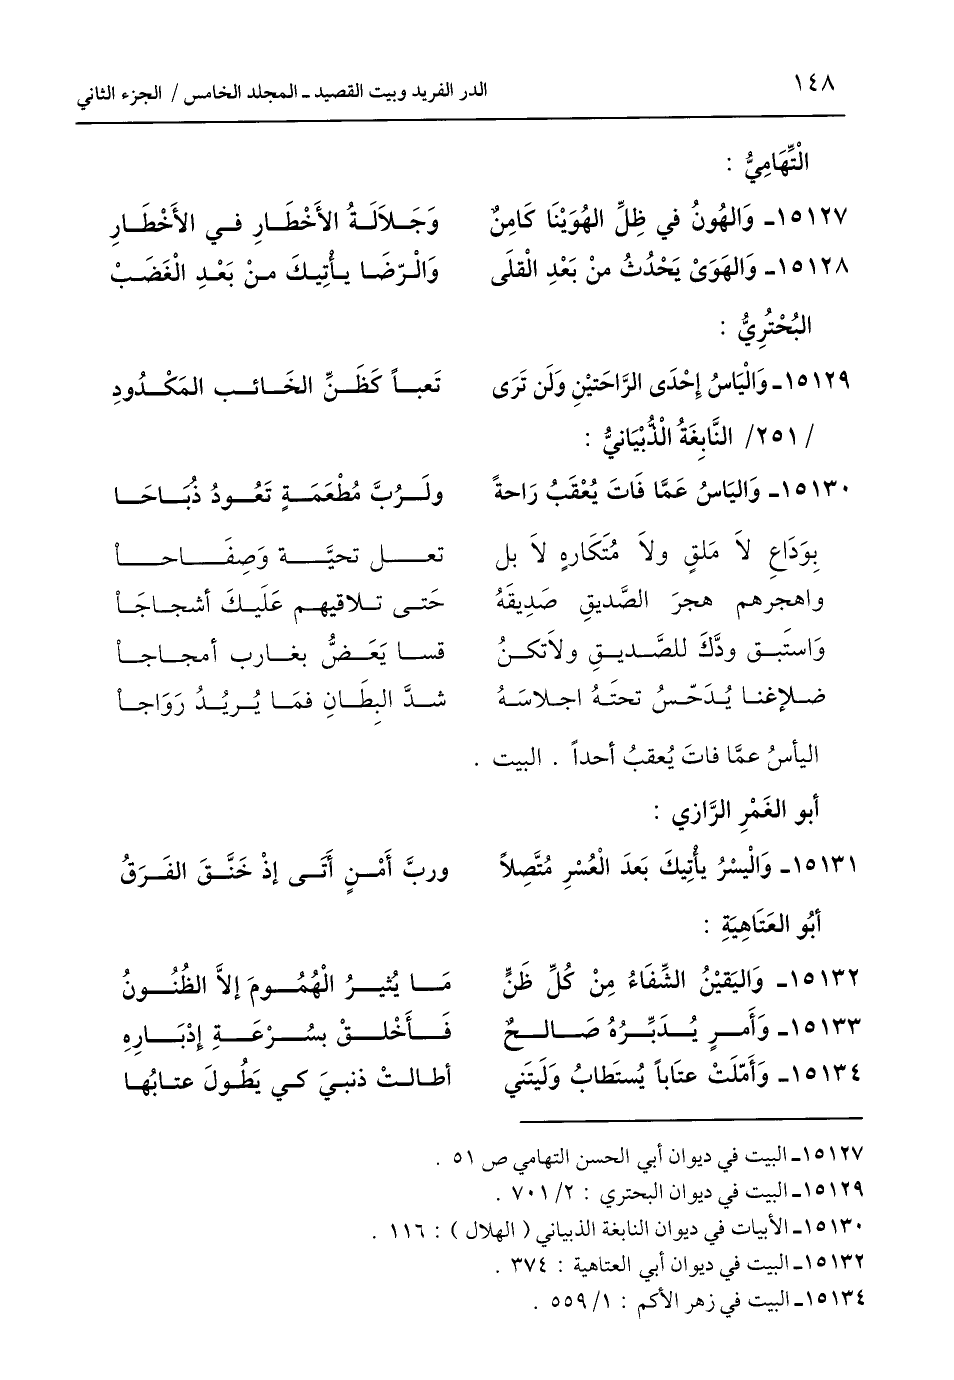 ١٤٨
الدر الفريد وبيت القصيد ـ المجلد الخامس / الجزء الثاني
الْتِّهَامِيُّ :
١٥١٢٧ـ وَالهُونُ في ظِلِّ الهُوَيْنَا كَامِنٌ وَجَــلاَلَـةُ الأَخْطَـارِ فـي الأَخْطَـارِ
١٥١٢٨ـ وَالهَوَىْ يَحْدُثُ منْ بَعْدِ الْقلَى وَالْـرّضَـا يـأْتِيـكَ مـنْ بَعْـدِ الْغَضَـبْ
البُحْتُرِيُّ :
١٥١٢٩ـ وَالْيَاسُ إِحْدَى الرَّاحَتيْنِ وَلَن تَرَى تَعبـاً كَظَـنِّ الخَـائـب المَكْـدُودِ
/ ٢٥١/ النَّابِغَةُ الْذُّبْيَانيُّ :
١٥١٣٠ـ وَاليَاسُ عَمَّا فَاتَ يُعْقَبُ رَاحةً ولَـرُبَّ مُطْعَمَـةٍ تَعُـودُ ذُبَـاحَـا
بِوَدَاعِ لاَ مَلقٍ ولاَ مُتَكَارِهٍ لاَ بل تعـل تحيَّـة وَصِفَـاحـاً
واهجرهم هجرَ الصَّديقِ صَديقَهُ حَتـى تـلاقيهـم عَلَيـكَ أشجـاجـاً
وَاستَبـق ودَّكَ للصَّـديـقِ ولاَتكـنُ قسـا يَعَـضُّ بغـارب أمجـاجـاً
ضلاِغنـا يُـدَحّـسُ تحتَـهُ اجلاسَـهُ شـدَّ البِطَـانِ فمَـا يُـريـدُ رَوَاجـاً
اليأسُ عمَّا فاتَ يُعقبُ أحداً . البيت .
أبو الغَمْرِ الرَّازي :
١٥١٣١ـ وَالْيسْرُ يأْتِيكَ بَعدَ الْعُسْرِ مُتَّصِلاً وربَّ أَمْـنٍ أَتَـى إذْ خَنَّـقَ الفَـرَقُ
أبُو العَتَاهِيَةِ :
١٥١٣٢ـ وَاليَقيْنُ الشِّفَاءُ مِنْ كُلِّ ظَنٍّ مَـا يُثيـرُ الْهُمُـومَ إلاَّ الظُنُـونُ
١٥١٣٣ـ وَأَمـرٍ يُـدَبِّـرُهُ صَـالـحٌ فَـأَخْلـقْ بسُـرْعَـةِ إِدْبَـارِهِ
١٥١٣٤ـ وَأَمّلَتْ عتَاباً يُستَطابُ وَلَيتَني أطالـتْ ذنبـيَ كـي يَطُـولَ عتـابُهـا
١٥١٢٧ـ البيت في ديوان أبي الحسن التهامي ص ٥١ .
١٥١٢٩ـ البيت في ديوان البحتري : ٢/ ٧٠١ .
١٥١٣٠ـ الأبيات في ديوان النابغة الذبياني ( الهلال ) : ١١٦ .
١٥١٣٢ـ البيت في ديوان أبي العتاهية : ٣٧٤ .
١٥١٣٤ـ البيت في زهر الأكم : ١/ ٥٥٩ .